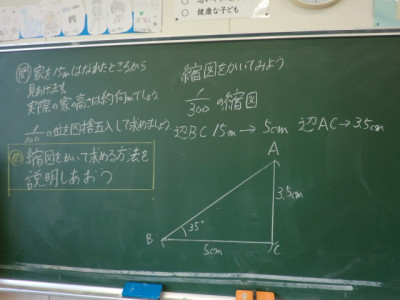 健康な子ども
問 家を15mはなれたところから
見あげます。
実際の家の高さは約何mでしょう
1/100の位を四捨五入して求めましょう
縮図をかいて求める方法を
説明しあおう
縮図をかいてみよう
1/300の縮図
辺BC 15m → 5cm 辺AC→3.5cm
A
3.5cm
B 35° C
5cm